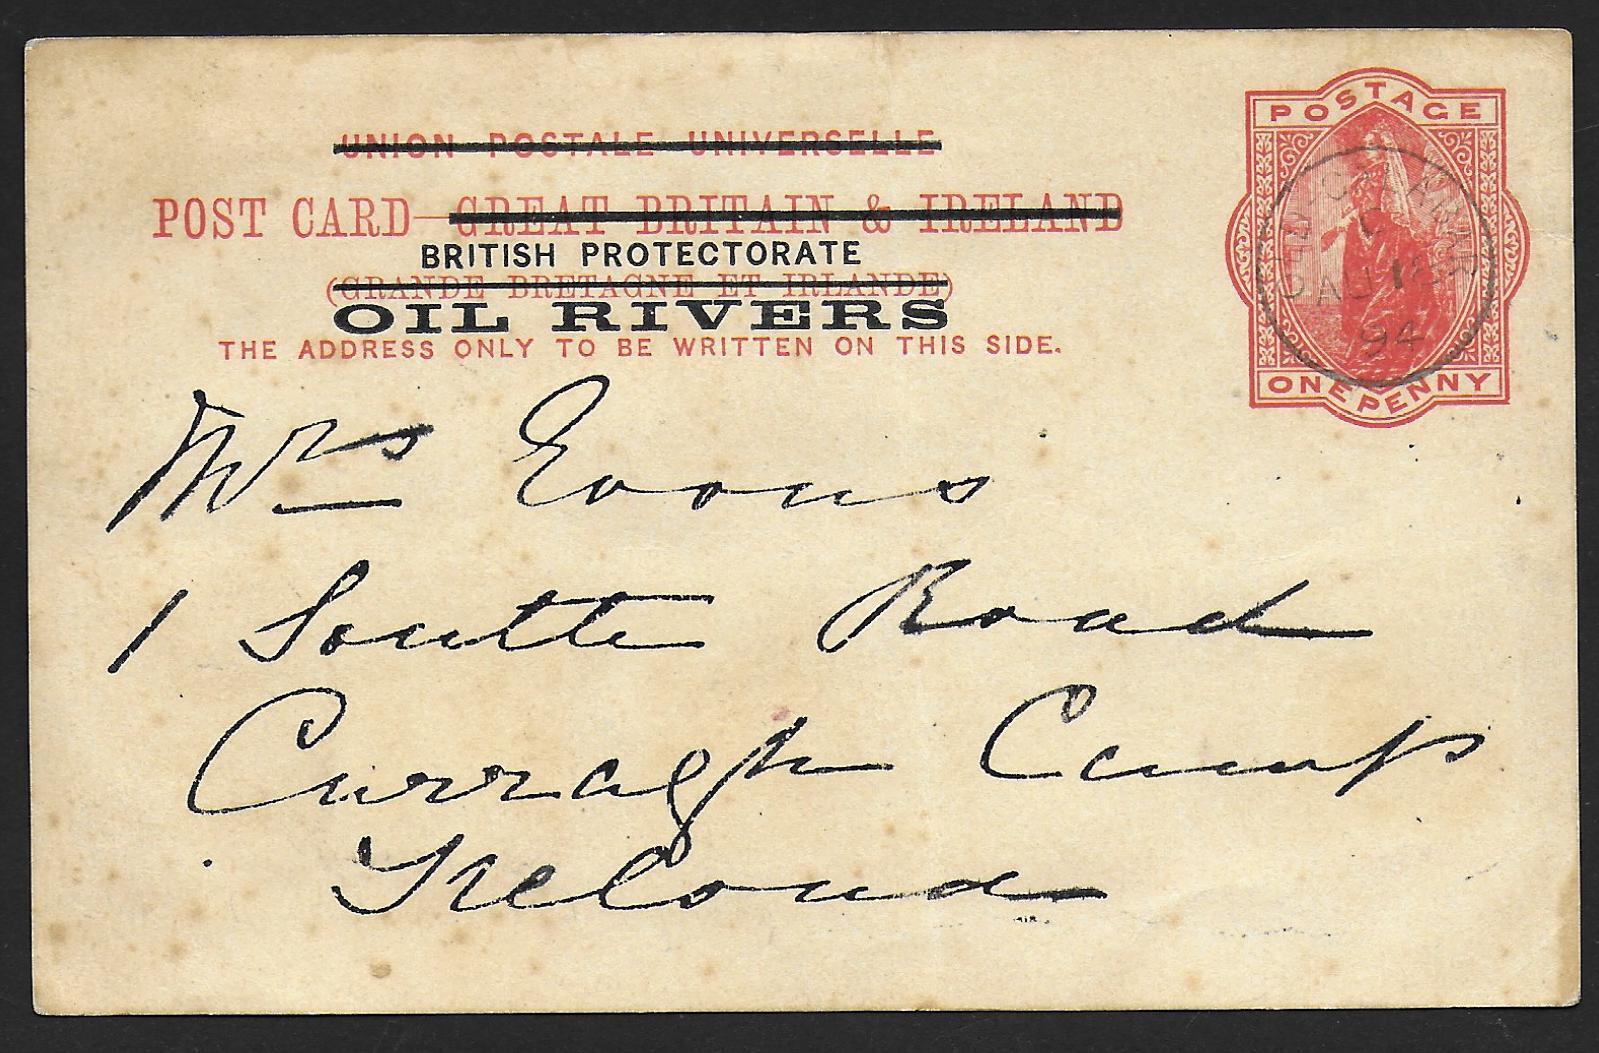 UNION POSTALE UNIVERSELLE
POST CARD GREAT BRITAIN & IRELAND
BRITISH PROTECTORATE
(GRANDE BRETAGNE ET IRLANDE)
OIL RIVERS
THE ADDRESS ONLY TO BE WRITTEN ON THIS SIDE.
POSTAGE
OLD CALABAR
C
AU 18
94
ONE PENNY
Mrs Evans
1 South Road
Curragh Camp
Ireland